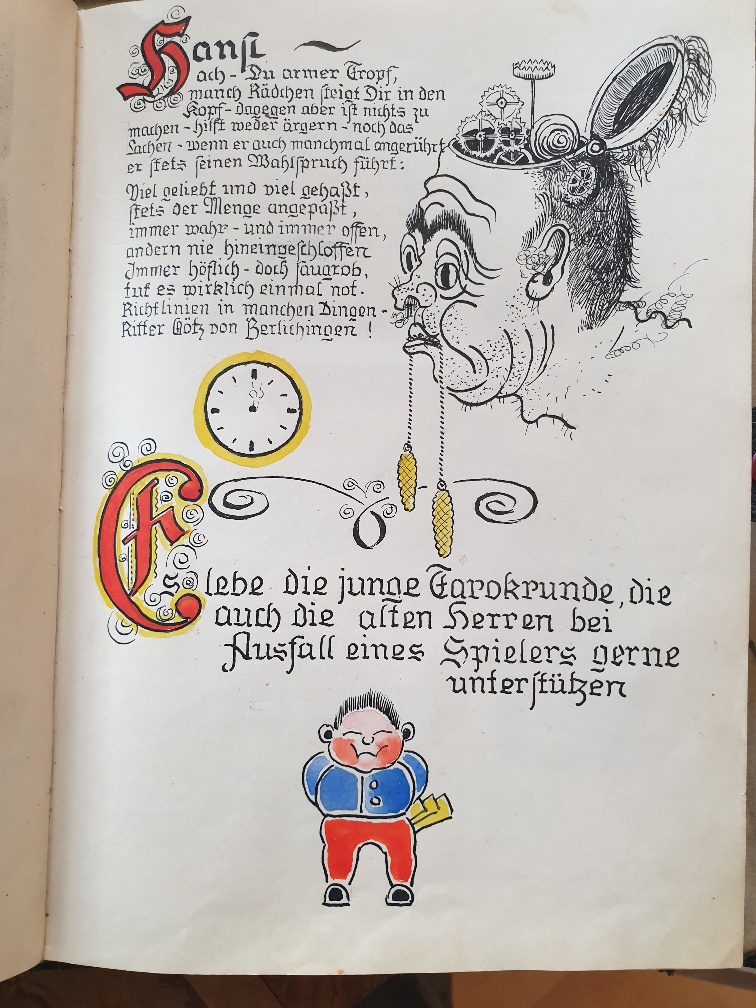 Hansl
ach - Du armer Tropf,
manch Rädchen steigt Dir in den
Kopf - dagegen aber ist nichts zu
machen - hilft weder ärgern - noch das
Lachen - wenn er auch manchmal angerührt
er stets seinen Wahlspruch führt:
Viel geliebt und viel gehaßt,
stets der Menge angepaßt,
immer wahr - und immer offen,
andern nie hineingeschloffen
Immer höflich - doch saugrob,
tut es wirklich einmal not.
Richtlinien in manchen Dingen -
Ritter Götz von Berlichingen !
Es lebe die junge Tarokrunde, die
auch die alten Herren bei
Ausfall eines Spielers gerne
unterstützen